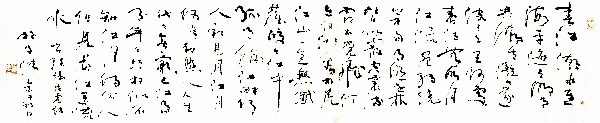 春江潮水連
海平海上明月
共潮生灩灩隨
波千萬里何處
春江無月明
江流宛轉繞
芳甸月照花林
皆似霰空里流
霜不覺飛汀
上白沙看不見
江天一色無纖
塵皎皎空中
孤月輪江畔何
人初見月江月
何年初照人人生
代代無窮已江月
年年望相似不
知江月待何人
但見長江送流
水